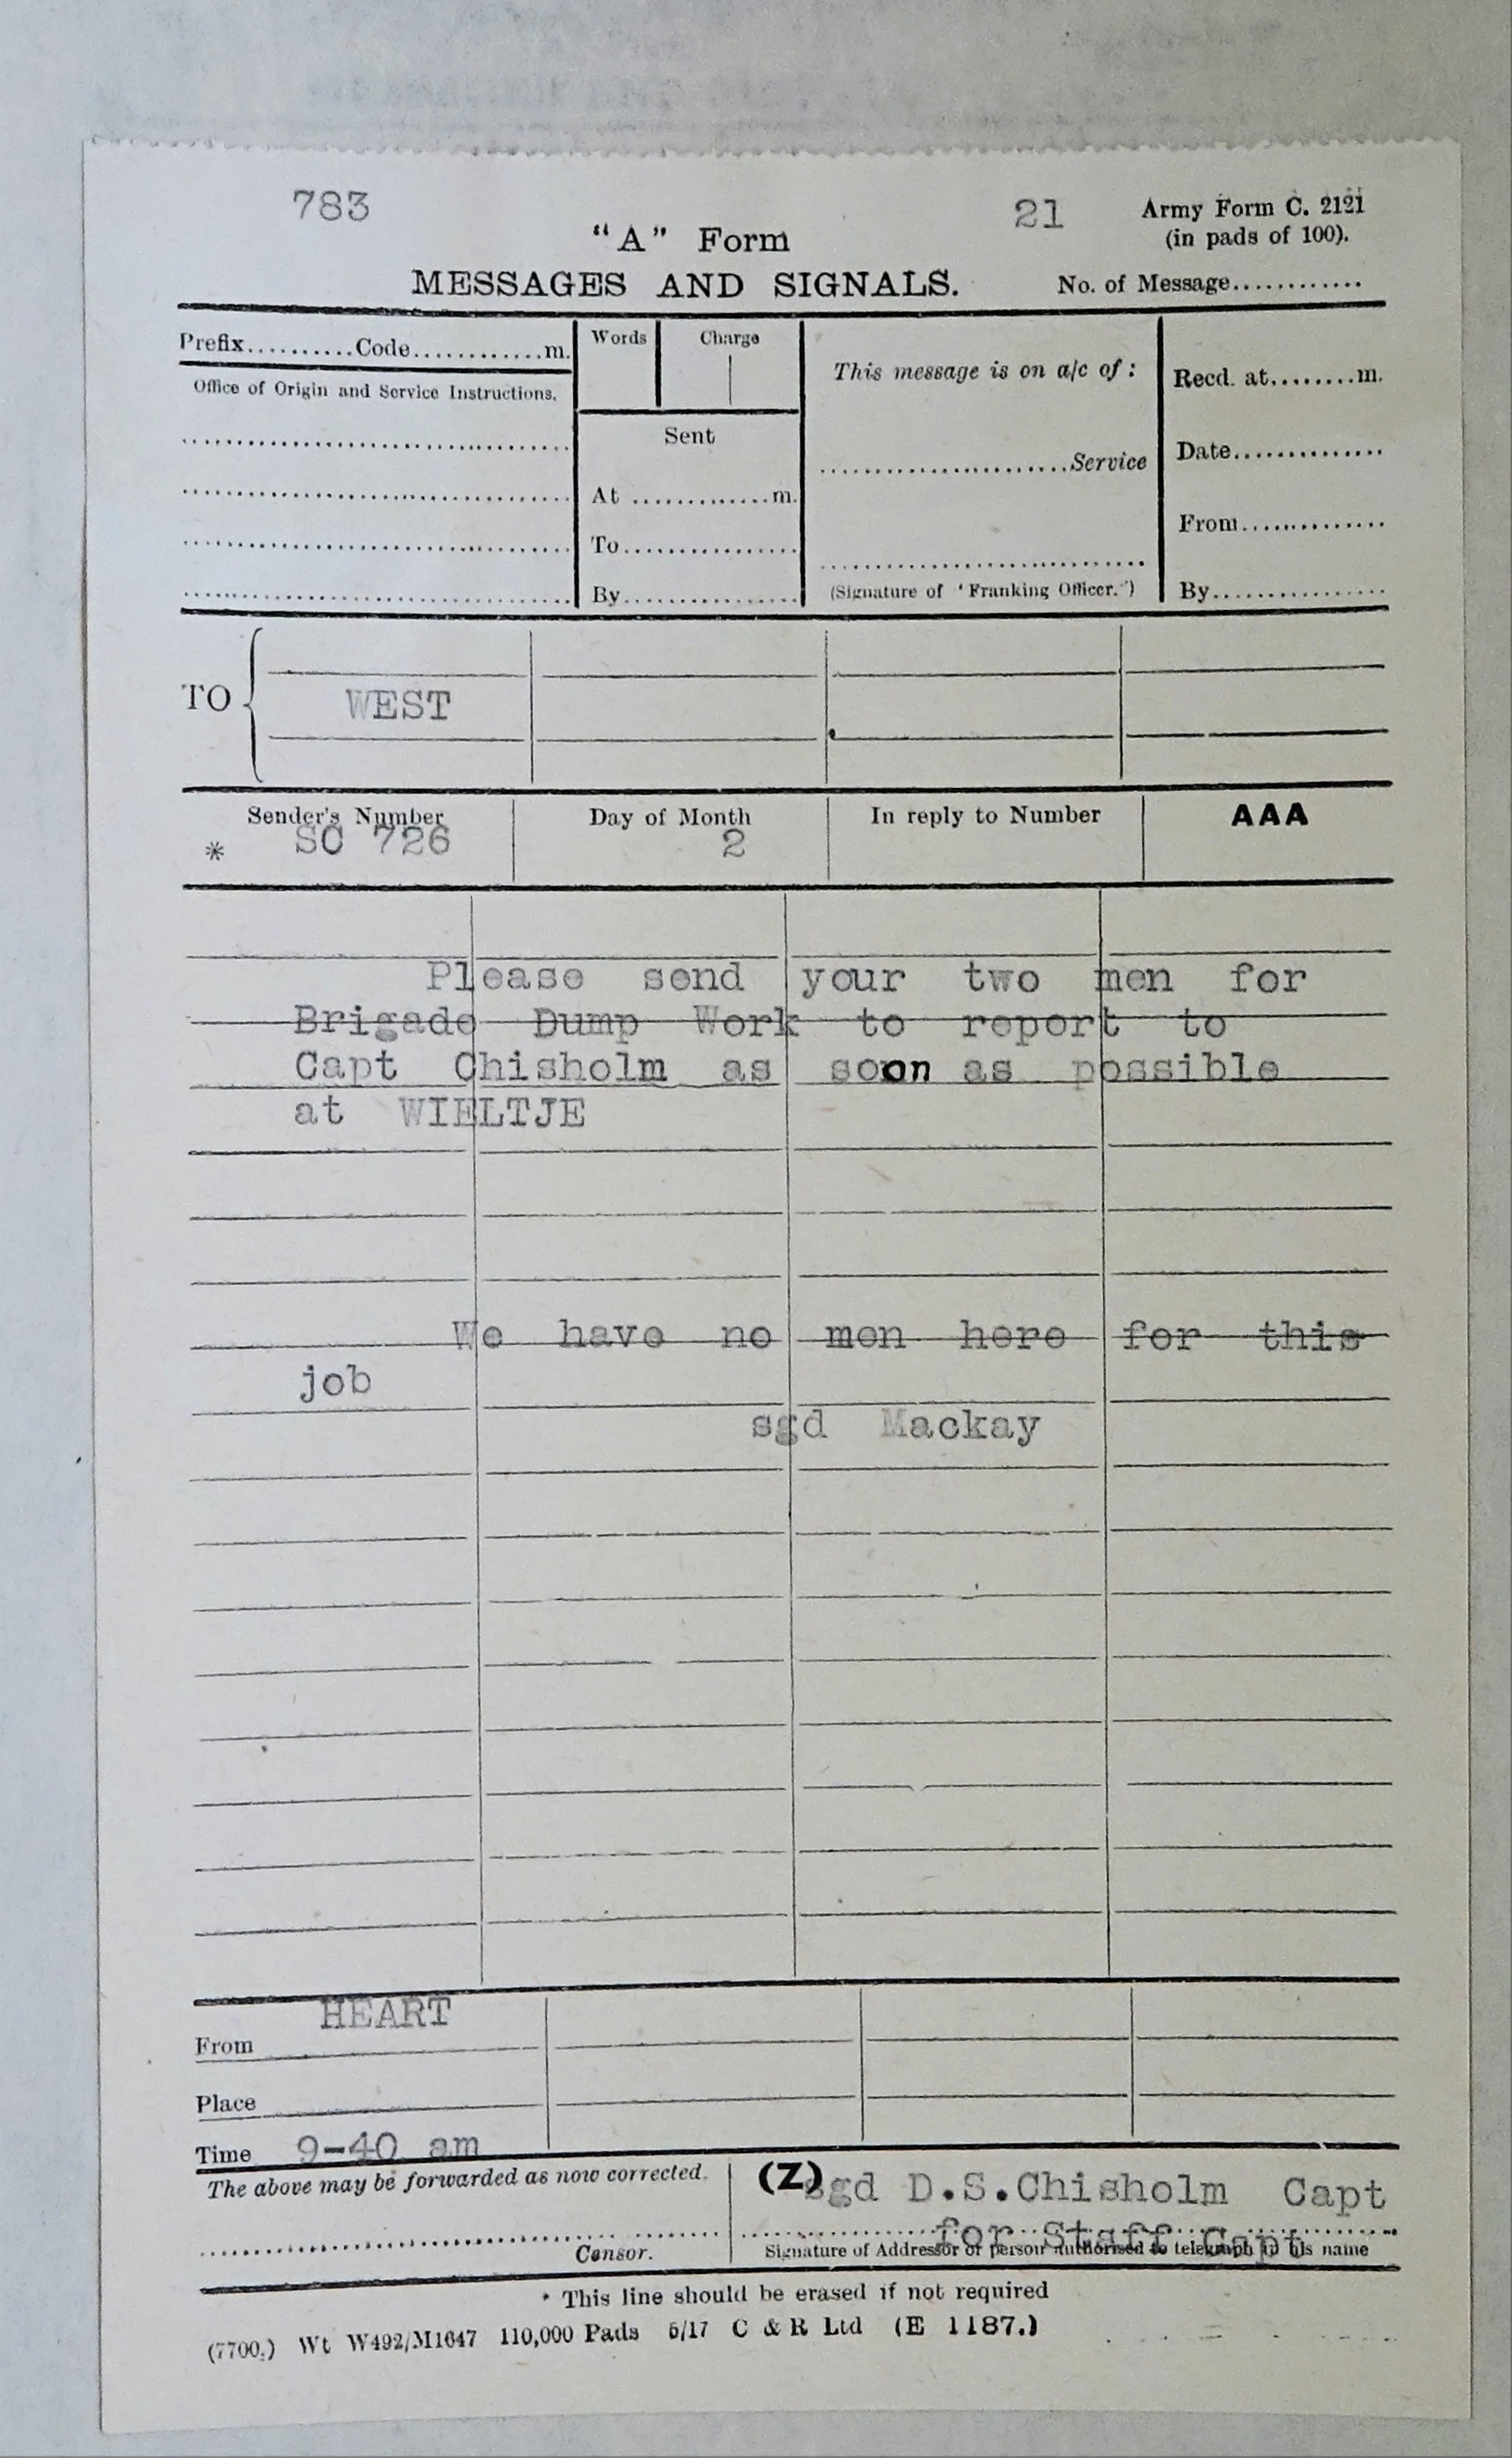 783
21
Army Form C. 2121
(in pads of 100).
"A" Form
MESSAGES AND SIGNALS.
No. of Message............
Prefix..........Code............m.
Words
Charge
This message is on a/c of :
Recd. at........m.
Office of Origin and Service Instructions.
Sent
........................Service
Date..............
At .............m.
From..............
To................
By................
(Signature of 'Franking Officer.')
By................
TO
WEST
Sender's Number
Day of Month
In reply to Number
AAA
* SC 726
2
Please send your two men for
Brigade Dump Work to report to
Capt Chisholm as soon as possible
at WIELTJE
We have no men here for this
job
sgd Mackay
HEART
From
Place
Time 9-40 am
The above may be forwarded as now corrected.
(Z) sgd D.S.Chisholm Capt
for Staff Capt
Censor.
Signature of Addressor or person authorised to telegraph in his name
* This line should be erased if not required
(7700.) Wt W492/M1647 110,000 Pads 5/17 C & R Ltd (E 1187.)